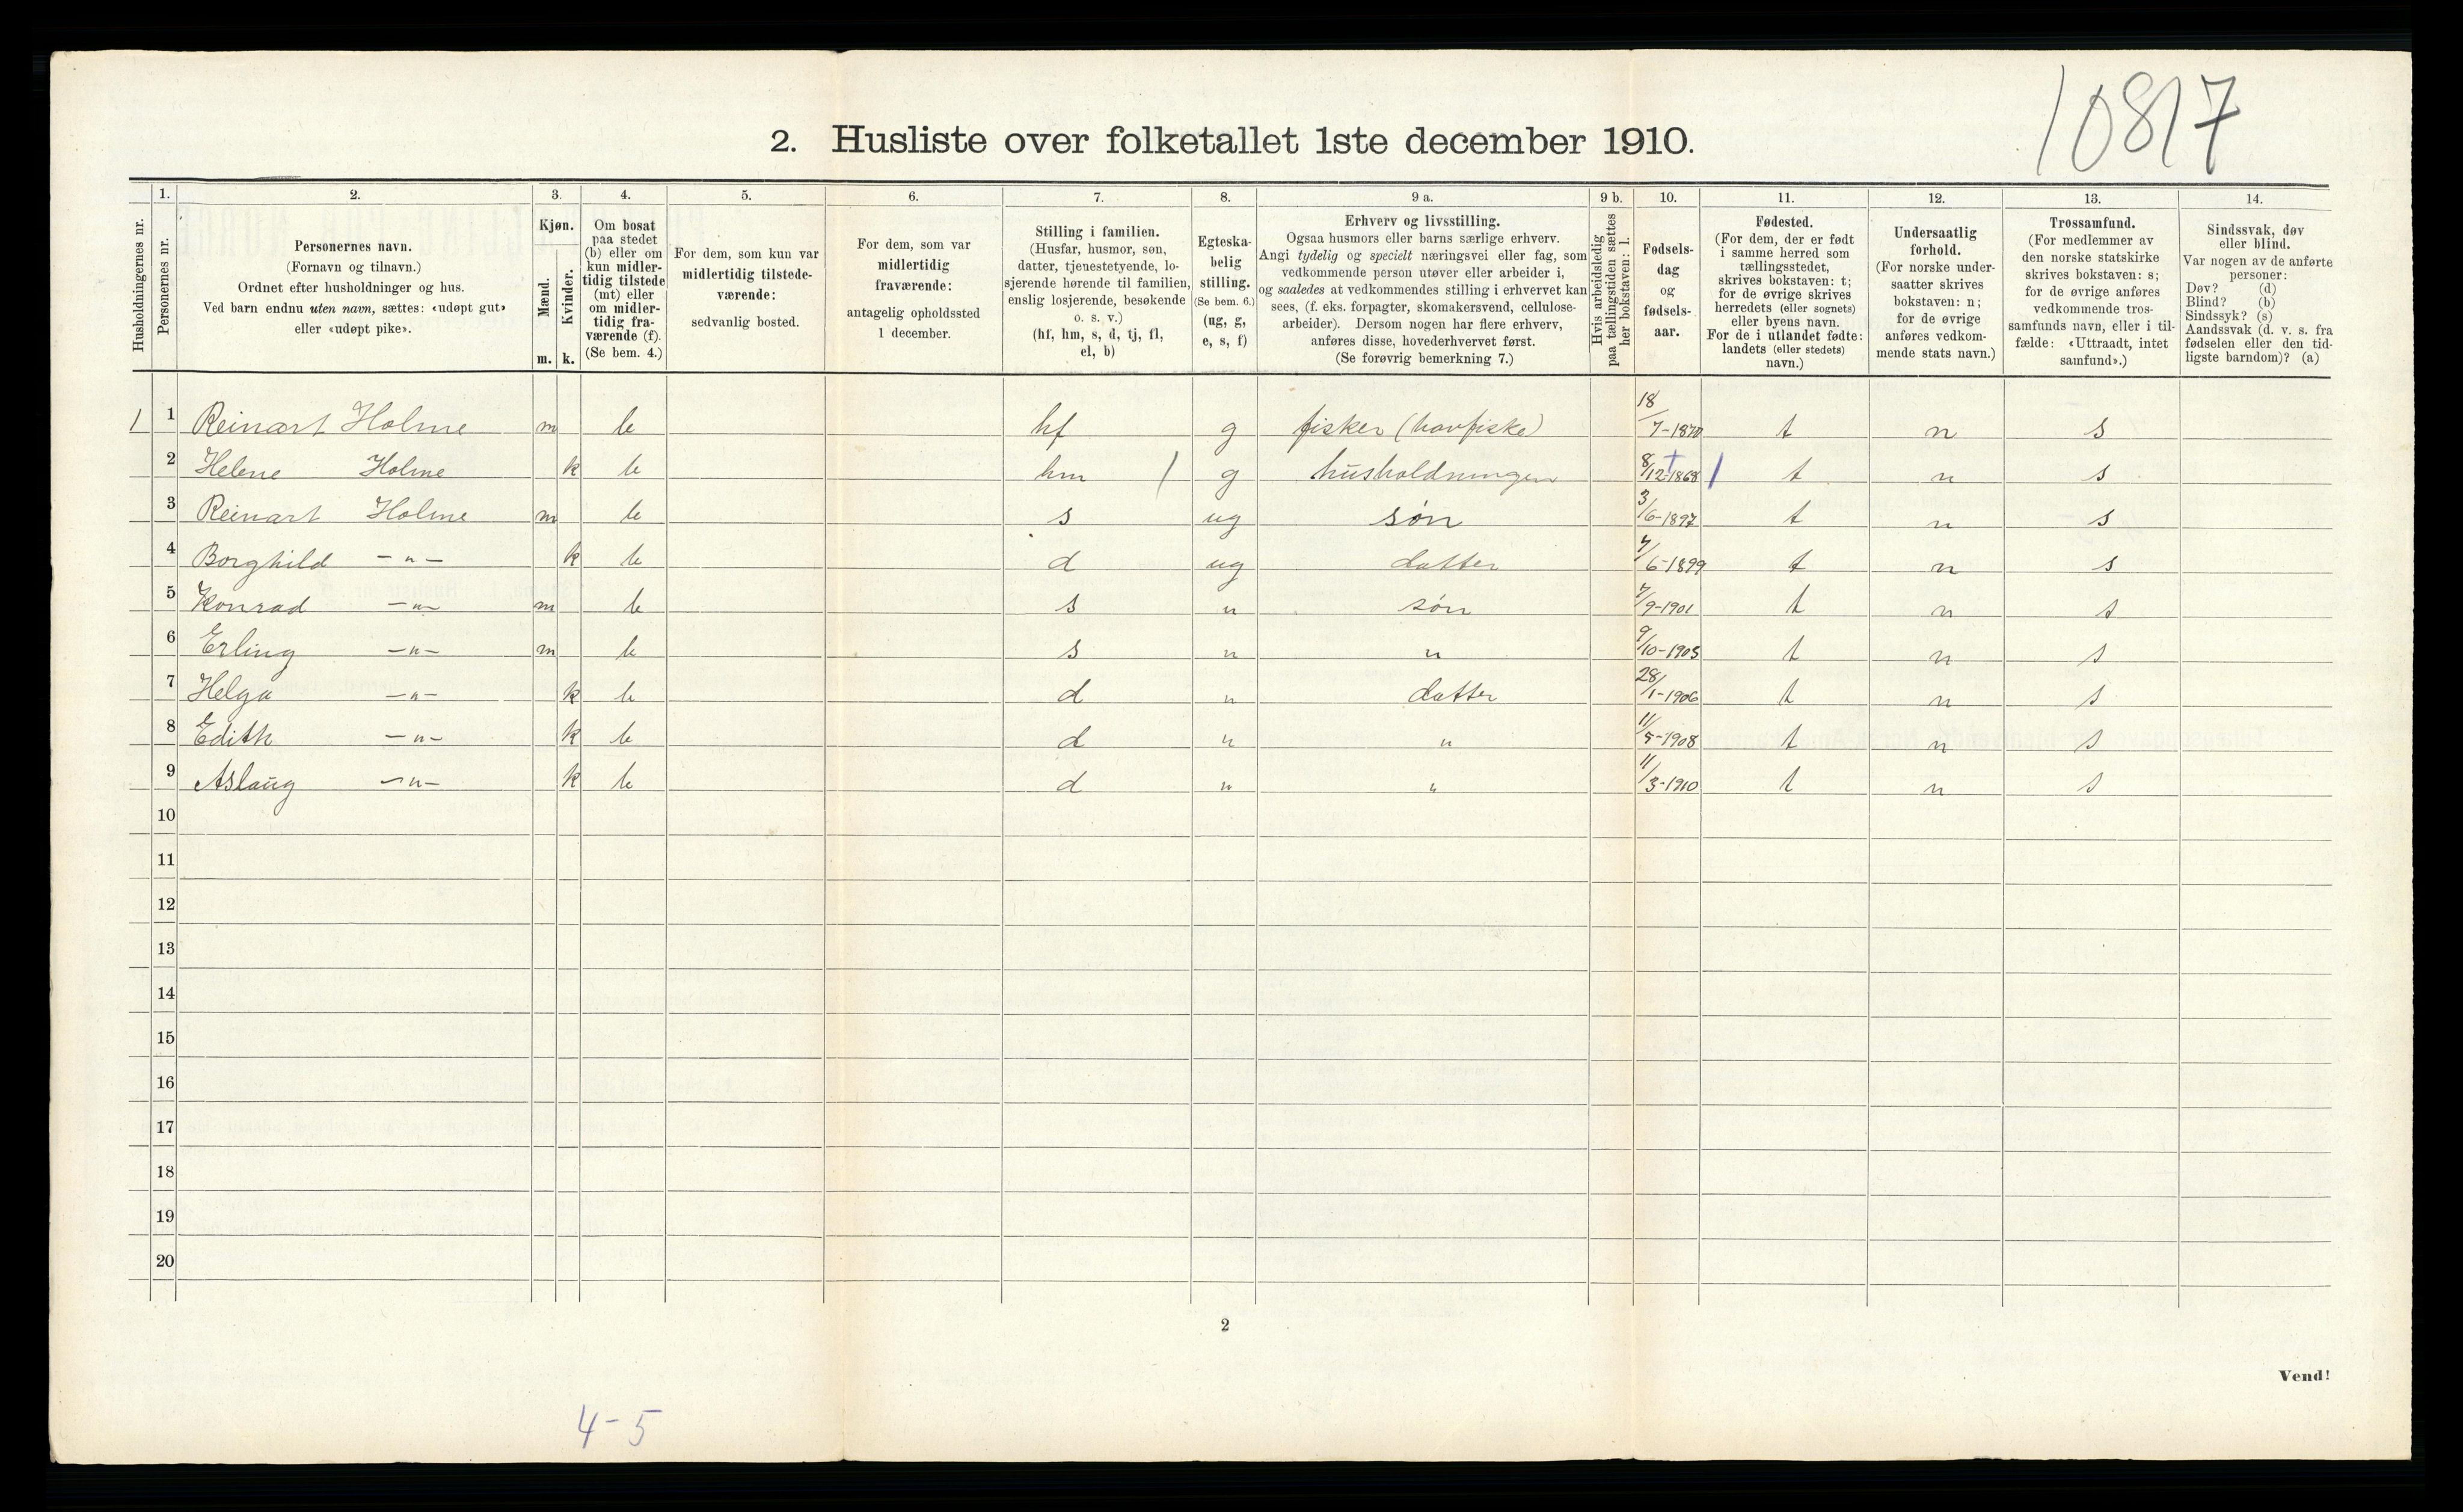 10817
2. Husliste over folketallet 1ste december 1910.
Husholdningernes nr.
1.
Personernes nr.
2.
Personernes navn.
(Fornavn og tilnavn.)
Ordnet efter husholdninger og hus.
Ved barn endnu uten navn, sættes: «udøpt gut»
eller «udøpt pike».
3.
Kjøn.
Mænd.
m.
Kvinder.
k.
4.
Om bosat
paa stedet
(b) eller om
kun midler-
tidig tilstede
(mt) eller
om midler-
tidig fra-
værende (f).
(Se bem. 4.)
5.
For dem, som kun var
midlertidig tilstede-
værende:
sedvanlig bosted.
6.
For dem, som var
midlertidig
fraværende:
antagelig opholdssted
1 december.
7.
Stilling i familien.
(Husfar, husmor, søn,
datter, tjenestetyende, lo-
sjerende hørende til familien,
enslig losjerende, besøkende
o. s. v.)
(hf, hm, s, d, tj, fl,
el, b)
8.
Egteska-
belig
stilling.
(Se bem. 6.)
(ug, g,
e, s, f)
9 a.
Erhverv og livsstilling.
Ogsaa husmors eller barns særlige erhverv.
Angi tydelig og specielt næringsvei eller fag, som
vedkommende person utøver eller arbeider i,
og saaledes at vedkommendes stilling i erhvervet kan
sees, (f. eks. forpagter, skomakersvend, cellulose-
arbeider). Dersom nogen har flere erhverv,
anføres disse, hovederhvervet først.
(Se forøvrig bemerkning 7.)
9 b.
Hvis arbeidsledig
paa tællingstiden sættes
her bokstaven: l.
10.
Fødsels-
dag
og
fødsels-
aar.
11.
Fødested.
(For dem, der er født
i samme herred som
tællingsstedet,
skrives bokstaven: t;
for de øvrige skrives
herredets (eller sognets)
eller byens navn.
For de i utlandet fødte:
landets (eller stedets)
navn.)
12.
Undersaatlig
forhold.
(For norske under-
saatter skrives
bokstaven: n;
for de øvrige
anføres vedkom-
mende stats navn.)
13.
Trossamfund.
(For medlemmer av
den norske statskirke
skrives bokstaven: s;
for de øvrige anføres
vedkommende tros-
samfunds navn, eller i til-
fælde: «Uttraadt, intet
samfund».)
14.
Sindssvak, døv
eller blind.
Var nogen av de anførte
personer:
Døv? (d)
Blind? (b)
Sindssyk? (s)
Aandssvak (d. v. s. fra
fødselen eller den tid-
ligste barndom)? (a)
1 1 Reinart Holme m b hf g fisker (havfiske) 18/7-1870 t n s
2 Helene Holme k b hm / g husholdningen 8/12-1868 / t n s
3 Reinart Holme m b s ug søn 3/6-1897 t n s
4 Borghild -"- k b d ug datter 7/6-1899 t n s
5 Konrad -"- m b s " søn 7/9-1901 t n s
6 Erling -"- m b s " " 9/10-1903 t n s
7 Helga -"- k b d " datter 28/1-1906 t n s
8 Edith -"- k b d " " 11/5-1908 t n s
9 Aslaug -"- k b d " " 11/3-1910 t n s
10
11
12
13
14
15
16
17
18
19
20
2
Vend!
4-5